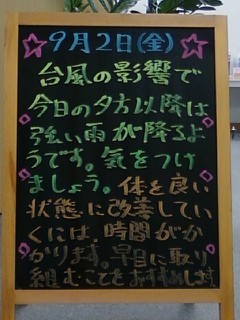 9月2日(金)
台風の影響で
今日の夕方以降は
強い雨が降るよ
うです。気をつけ
ましょう。体を良い
状態に改善してい
くには、時間がか
かります。早目に取り
組むことをおすすめします